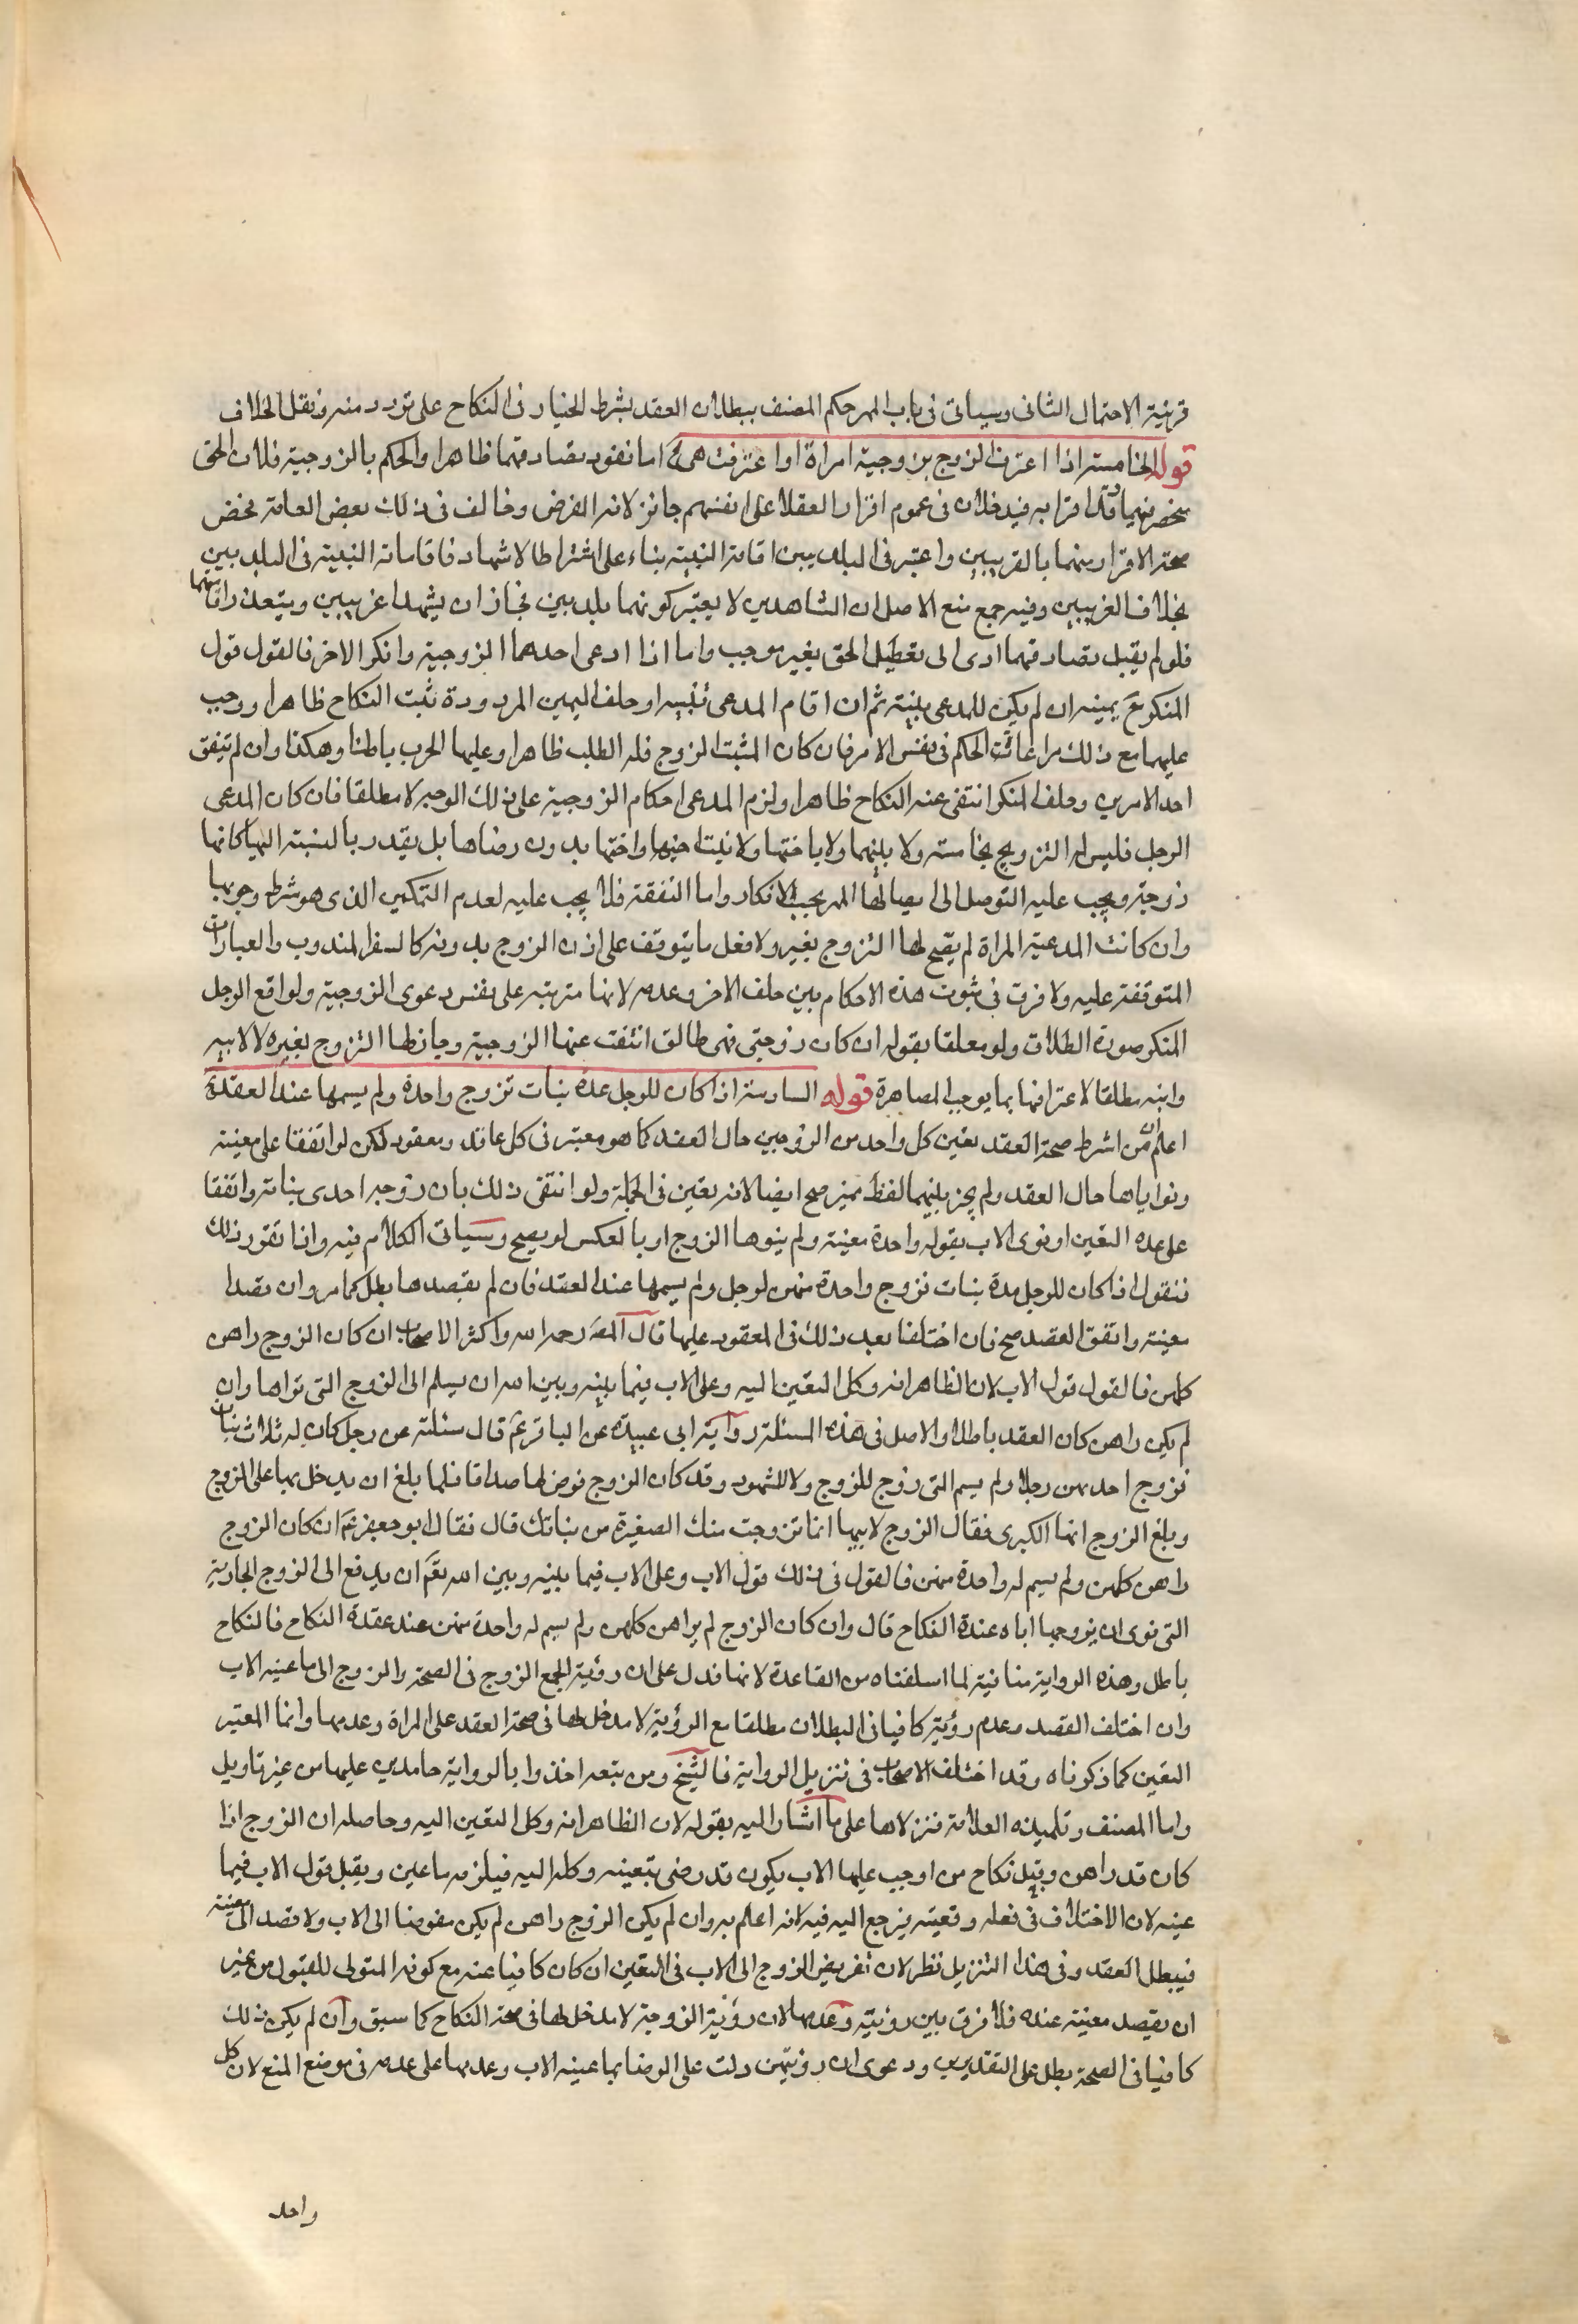 قرينة الاحتمال الثانى وسياتى فى باب المهر حكم المصنف ببطلان العقد بشرط الخيار فى النكاح على تردد منه ونقل الخلاف
قوله الخامسة اذا اعترف الزوج بزوجية امراة او اعترفت هى اما نفوذ تصادقهما ظاهرا والحكم بالزوجية فلان الحق
منحصر فيهما وقد اقرا به فيدخلان فى عموم اقرار العقلا على انفسهم جائز لانه الفرض وخالف فى ذلك بعض العامة فخص
صحة الاقرار منهما بالغريبين واعتبر فى البلديين اقامة البينة بناء على اشتراط الاشهاد فاقامة البينة فى البلديين
بخلاف الغريبين وفيه جمع منع الاصل ان الشاهدين لا يعتبر كونهما بلديين فجاز ان يشهدا غريبين ويتعذر اقامتهما
فلو لم يقبل تصادقهما ادى الى تعطيل الحق بغير موجب واما اذا ادعى احدهما الزوجية وانكر الاخر فالقول قول
المنكر مع يمينه ان لم يكن للمدعى بينة ثم ان اقام المدعى بينة او حلف اليمين المردودة ثبت النكاح ظاهرا ووجب
عليهما مع ذلك مراعات الحكم فى نفس الامر فان كان المثبت الزوج فله الطلب ظاهرا وعليها الهرب باطنا وهكذا وان لم يتفق
احد الامرين وحلف المنكر انتفى عنه النكاح ظاهرا ولزم المدعى احكام الزوجية على ذلك الوجه لا مطلقا فان كان المدعى
الرجل فليس له التزويج بخامسة ولا بامها ولا باختها ولا بنت اخيها واختها بدون رضاها بل يقدر بالنسبة اليها كانها
زوجة ويجب عليه التوصل الى ايصالها المهر بحسب الانكار واما النفقة فلا يجب عليه لعدم التمكين الذى هو شرط وجوبها
وان كانت المدعية المراة لم يصح لها التزوج بغيره ولا فعل ما يتوقف على اذن الزوج بدونه كالسفر المندوب والعبادات
المتوقفة عليه ولا فرق فى ثبوت هذه الاحكام بين حلف الاخر وعدمه لانها مترتبه على نفس دعوى الزوجية ولو اوقع الرجل
المنكر صورة الطلاق ولو معلقا بقوله ان كان زوجتى فهى طالق انتفت عنها الزوجية وجاز لها التزوج بغيره لا لابيه
وابنه مطلقا لاعترافها بما يوجب المصاهرة قوله السادسة اذا كان للرجل عدة بنات تزوج واحدة ولم يسمها عند العقدة
اعلم ان من اشرط صحة العقد تعين كل واحد من الزوجين حال العقد كما هو معتبر فى كل عاقد ومعقود لكن لو اتفقا على معينة
ونواياها حال العقد ولم يجر بينهما لفظ مميز صح ايضا لانه تعين فى الجملة ولو انتفى ذلك بان زوجه احدى بناته واتفقا
على عدم التعين او نوى الاب بقوله واحدة معينة ولم ينوها الزوج او بالعكس لو يصح وسياتى الكلام فيه واذا تقرر ذلك
فنقول اذا كان للرجل عدة بنات تزوج واحدة منهن لرجل ولم يسمها عند العقد فان لم يقصدها بطل كما مر وان قصدا
معينة واتفق القصد صح فان اختلفا بعد ذلك فى المعقود عليها قال المص رحمه الله واكثر الاصحاب ان كان الزوج راهن
كلهن فالقول قول الاب لان الظاهر انه وكل التعين اليه وعلى الاب فيما بينه وبين الله ان يسلم الى الزوج التى نواها وان
لم يكن راهن كان العقد باطلا والاصل فى هذه المسئلة رواية ابى عبيدة عن الباقر ع قال سئلته عن رجل كان له ثلاث بنات
فزوج احدهن رجلا ولم يسم التى زوج للزوج ولا للشهود وقد كان الزوج فرض لها صداقا فلما بلغ ان يدخل بها على الزوج
وبلغ الزوج انها الكبرى فقال الزوج لابيها انما تزوجت منك الصغيرة من بناتك قال فقال ابو جعفر ع ان كان الزوج
راهن كلهن ولم يسم له واحدة منهن فالقول فى ذلك قول الاب وعلى الاب فيما بينه وبين الله تع ان يدفع الى الزوج الجارية
التى نوى ان يزوجها اياه عندة النكاح قال وان كان الزوج لم يراهن كلهن ولم يسم له واحدة منهن عند عقدة النكاح فالنكاح
باطل وهذه الرواية منافية لما اسلفناه من القاعدة لانها تدل على ان رؤية الجمع الزوج فى الصحة والزوج الى ما عينه الاب
وان اختلف القصد وعدم رؤيته كافيا فى البطلان مطلقا مع الرؤية لا مدخل لها فى صحة العقد على المراة وعدمها وانما المعتبر
التعين كما ذكرناه وقد اختلف الاصحاب فى تنزيل الرواية فالشيخ ومن تبعه اخذوا بالرواية جامدين عليها من غير تاويل
واما المصنف وتلميذه العلامة فنزلاها على ما اشار اليه بقوله لان الظاهر انه وكل التعين اليه وحاصله ان الزوج اذا
كان قد راهن وقبل نكاح من اوجب عليها الاب يكون قد رضى بتعينه وكله اليه فيلزمه ما عين ويقبل قول الاب فيما
عينه لان الاختلاف فى فعله وتعينه يرجع اليه فيه لانه اعلم به وان لم يكن الزوج راهن لم يكن مفوضا الى الاب ولا قصد الى معينة
فيبطل العقد وفى هذا التنزيل نظر لان تفريض الزوج الى الاب فى التعين ان كان كافيا عنه مع كونه المتولى للقبول من غير
ان يقصد معينة عنده فلا فرق بين رؤيته وعدمها لان رؤية الزوجة لا مدخل لها فى صحة النكاح كما سبق وان لم يكن ذلك
كافيا فى الصحة بطل على التقديرين ودعوى ان رؤيتهن دلت على الرضا بما عينه الاب وعدمها على عدمه فى موضع المنع لان كل
واحد